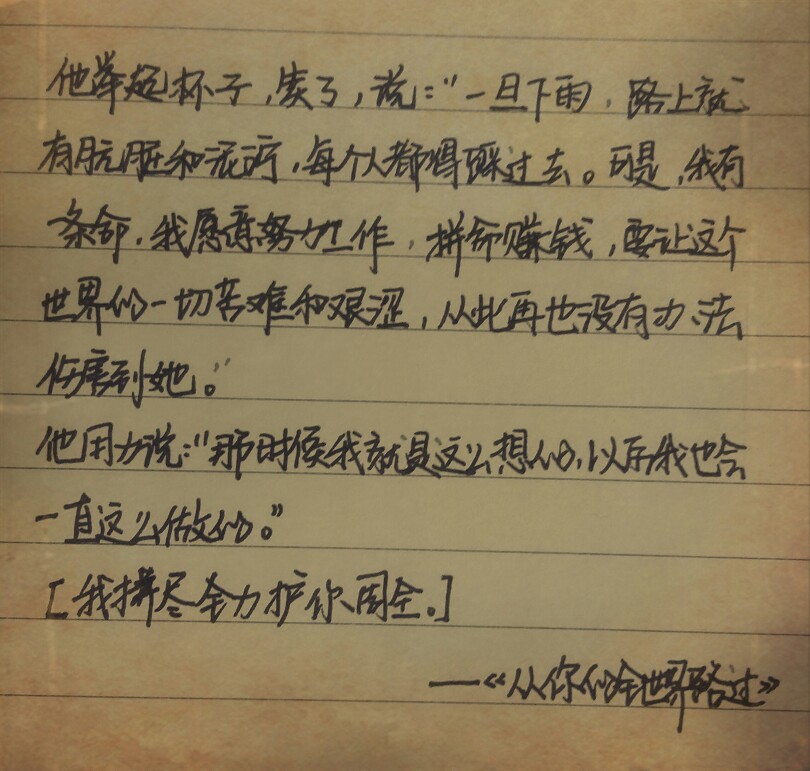 他举起杯子，笑了，说：“一旦下雨，路上就
有肮脏和泥泞，每个人都得踩过去。可是，我有
条命，我愿意努力工作，拼命赚钱，要让这个
世界的一切苦难和艰涩，从此再也没有办法
伤害到她。”
他用力说：“那时候我就是这么想的，以后我也会
一直这么做的。”
[我拼尽全力护你周全。]
——《从你的全世界路过》